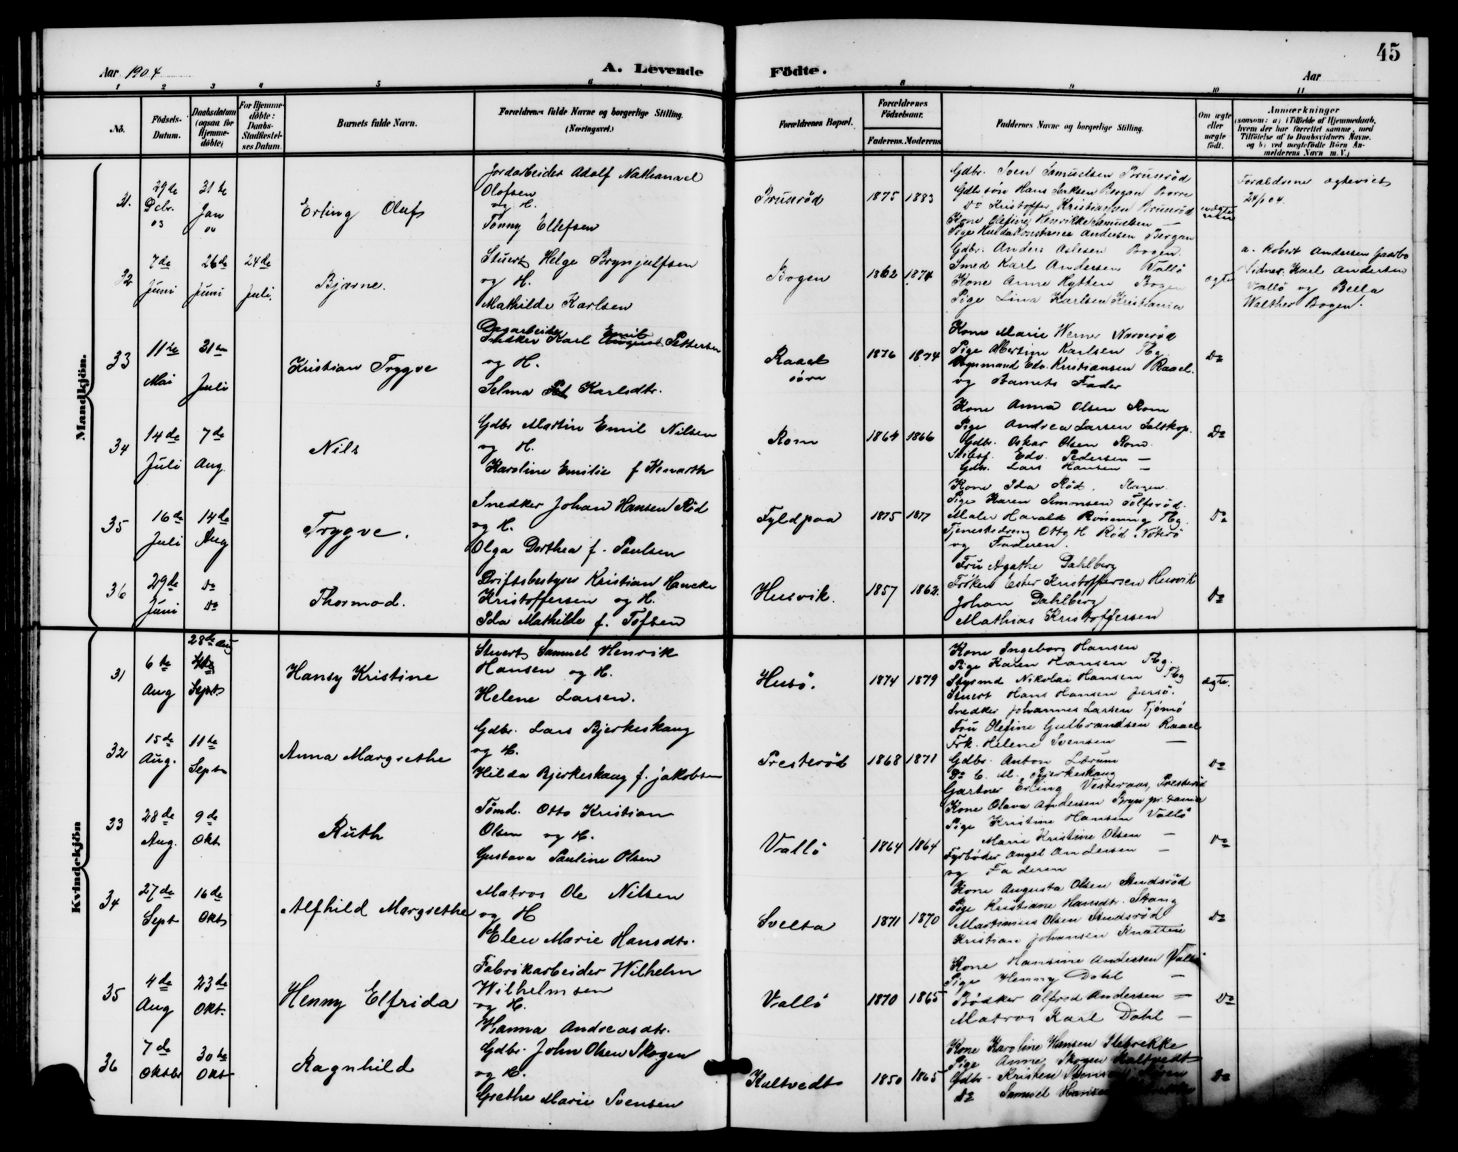 45
Aar 1904
A. Levende Fødte.
Aar
1 2 3 4 5 6 8 9 10 11
No.
Fødsels-Datum.
Daabsdatum (ogsaa for Hjemme-døbte;
For Hjemme-døbte: Daabs-Stadfæstelses Datum.
Barnets fulde Navn.
Forældrenes fulde Navne og borgerlige Stilling. (Næringsvei.)
Forældrenes Bopæl.
Forældrenes Fødselsaar.
Faderens. Moderens
Faddernes Navne og borgerlige Stilling.
Om ægte eller uægte født.
Anmærkninger
Mandkjøn.
29de Decbr. 03
31te Jan 04
Erling Oluf
Jordarbeider Adolf Nathanael
Olafsen
og H.
Tonny Ellefsen
Brunrød
1875 1883
Gdbr. Sven Samuelsen Brunrød
Do Kristoffer Kristiansen Brunrød
Pige Hulda Konstance Andersen Bergan
Forældrene ægteviet
24/4 04.
32
7de Juni
26de Juni
24de Juli
Bjarne.
Stuert Helge Brynjulfsen
og H.
Mathilde Karlsen
Bogen
1862 1874
Gdbr. Anders Aslesen Bogen
Smed Karl Andersen Vallø
Kone Anne Hytten Bogen
Pige Lina Karlsen Kristiania
ægte
a. Robert Andersen
Vidner. Karl Andersen
Vallø og Bella
Walther Bogen.
33
11te Mai
31te Juli
Kristian Trygve
Karl Emil Pettersen
og H.
Selma Karlsdtr.
Raael
søre
1876 1874
Kone Marie Werner Narverød
Pige Albertine Karlsen Tbg
Edv. Kristiansen Raael.
og Barnets Fader
Do
34
14de Juli
7de Aug.
Nils
Gdbr Martin Emil Nilsen
og H.
Karoline Emilie f
Rom
1864 1866
Kone Anna Olsen Rom
Pige Andrea Larsen
Gdbr. Oskar Olsen Rom.
Edv. Pedersen —
Gdbr. Lars Hansen —
Do
35
16de Juli
14de Aug
Trygve.
Snedker Johan Hansen Rød
og H.
Olga Dorthea f. Paulsen
Fyldpaa
1875 1877
Kone Ida Rød. Skogen.
Pige Karen Simonsen Tolfsrød.
Maler Harald Rønning Tbg.
Otto H Rød Nøterø
og Faderen.
Do
36
29de Juni
Do
Do
Thormod.
Driftsbestyrer Kristian Hancke
Kristoffersen og H.
Ida Mathilde f. Tofsen
Husvik.
1857 1862
Fru Agathe Dahlberg
Frøken Ester Kristoffersen Husvik
Johan Dahlberg
Mathias Kristoffersen
Do
Kvindekjøn
31
6te Aug
28de Aug
Sept
Hansy Kristine
Stuert Samuel Henrik
Hansen og H.
Helene Larsen.
Husø.
1874 1879
Kone Ingeborg Hansen
Pige Karen Hansen Tbg.
Styrmd Nikolai Hansen Tbg
Stuert Hans Hansen Jersø.
Snedker Johannes Larsen Tjømø
ægte.
32
15de Aug.
11te Sept
Anna Margrethe
Gdbr. Lars Bjerkeskaug
og H.
Hilda Bjerkeskaug f. Jakobsen
Presterød
1868 1871
Fru Olefine Gulbrandsen Raael
Frk. Helene Svensen —
Gdbr. Anton Lørum
Do C. M. Bjerkeskaug
Gartner Erling Vesteraas, Presterød
Do
33
28de Aug.
9de Okt
Ruth
Tømd. Otto Kristian
Olsen og H.
Gustava Pauline Olsen
Vallø
1864 1864
Kone Olava Andersen
Pige Kristine Hansen Vallø
Marie Kristine Olsen —
Fyrbøder Angel Andersen —
og Faderen
Do
34
27de Sept
16de Okt
Alfhild Margrethe
Matros Ole Nilsen
og H
Elen Marie Hansdtr.
Svelta
1871 1870
Kone Augusta Olsen Sundsrød
Pige Kristiane Hansdt. Skaug
Martinius Olsen Sundsrød
Kristian Johansen Knatten
Do
35
4de Aug
23de Okt.
Henny Elfrida
Fabrikarbeider Wilhelm
Wilhelmsen
og H.
Hanna Andreasdtr.
Vallø
1870 1865
Kone Hansine Andersen Vallø
Pige Henny Dahl —
Bødker Alfred Andersen —
Matros Karl Dahl —
Do
36
7de Oktbr
30te Okt
Ragnhild
Gdbr. John Olsen Skogen
og H.
Grethe Marie Svensen
Kaltvedt
1850 1865
Kone Karoline Hansen Slebrekke
Pige Anne Skogen Kaltvedt
Gdbr. Kristen
Do Samuel Hansen
Do